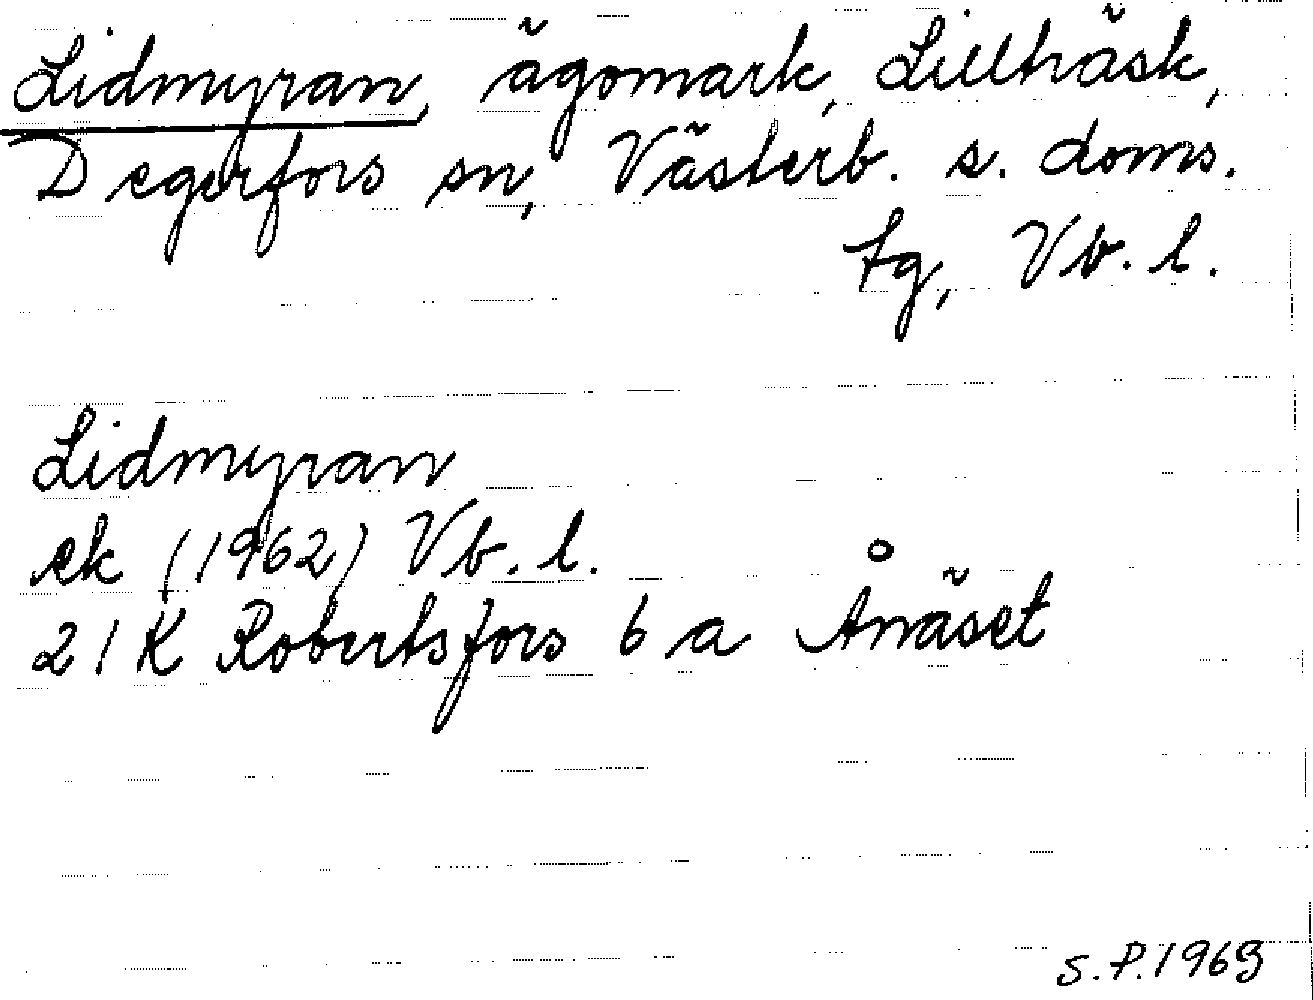 Lidmyran, ägomark, Lillträsk,
Degerfors sn, Västerb. s. doms.
tg, Vb. l.
Lidmyran
ek (1962) Vb. l.
21 K Robertsfors 6 a Ånäset
S.P. 1969